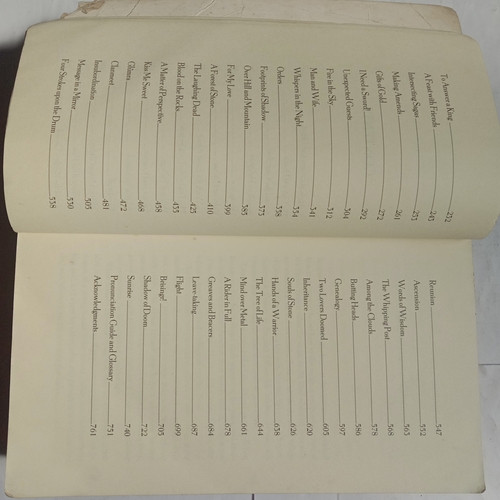 To Answer a King 232
A Feast with Friends 243
Intersecting Sagas 253
Making Amends 261
Gifts of Gold 272
I Need a Sword! 292
Unexpected Guests 304
Fire in the Sky 312
Man and Wife 341
Whispers in the Night 354
Orders 358
Footprints of Shadow 373
Over Hill and Mountain 385
For My Love 399
A Forest of Stone 410
The Laughing Dead 425
Blood on the Rocks 433
A Matter of Perspective 458
Kiss Me Sweet 468
Glûmra 472
Clanmeet 481
Insubordination 505
Message in a Mirror 530
Four Strokes upon the Drum 538
Reunion 547
Ascension 552
Words of Wisdom 563
The Whipping Post 568
Among the Clouds 578
Butting Heads 586
Genealogy 597
Two Lovers Doomed 605
Inheritance 620
Souls of Stone 626
Hands of a Warrior 638
The Tree of Life 644
Mind over Metal 661
A Rider in Full 678
Greaves and Bracers 684
Leave-taking 687
Flight 699
Brisingr! 705
Shadow of Doom 722
Sunrise 740
Pronunciation Guide and Glossary 751
Acknowledgments 761